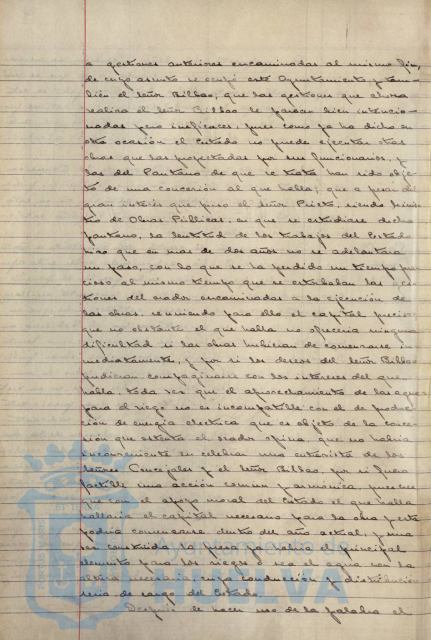 a gestiones anteriores encaminadas al mismo fin,
de cuyo asunto se ocupó este Ayuntamiento y tam-
bién el señor Bilbao; que las gestiones que ahora
realiza el señor Bilbao le parecen bien intencio-
nadas pero ineficaces, pues como ya ha dicho en
otra ocasión el Estado no puede ejecutar otras
obras que las proyectadas por sus funcionarios, y
las del Pantano de que se trata han sido obje-
to de una concesión al que habla; que a pesar del
gran interés que puso el señor Prieto, siendo Minis-
tro de Obras Públicas, en que se estudiase dicho
pantano, la lentitud de los trabajos del Estado
hizo que en más de dos años no se adelantara
un paso, con lo que se ha perdido un tiempo pre-
cioso al mismo tiempo que se estorbaban las ges-
tiones del orador encaminadas a la ejecución de
las obras, reuniendo para ello el capital preciso
que no obstante el que habla no ofrecería ninguna
dificultad si las obras hubieran de comenzarse in-
mediatamente, y por si los deseos del señor Bilbao
pudieran compaginarse con los intereses del que
habla, toda vez que el aprovechamiento de las aguas
para el riego no es incompatible con el de produc-
ción de energía eléctrica que es objeto de la conce-
sión que ostenta el orador opina, que no habría
inconveniente en celebrar una entrevista de los
señores Concejales y el señor Bilbao, por si fuera
factible una acción común y armónica, pues cree
que con el apoyo moral del Estado el que habla
hallaría el capital necesario para la obra y esta
podría comenzarse dentro del año actual, y una
vez construida la presa ya habría el principal
elemento para los riegos o sea el agua con la
altura necesaria, cuya conducción y distribución
sería de cargo del Estado.
Después de hacer uso de la palabra el
Ayuntamiento
HUELVA